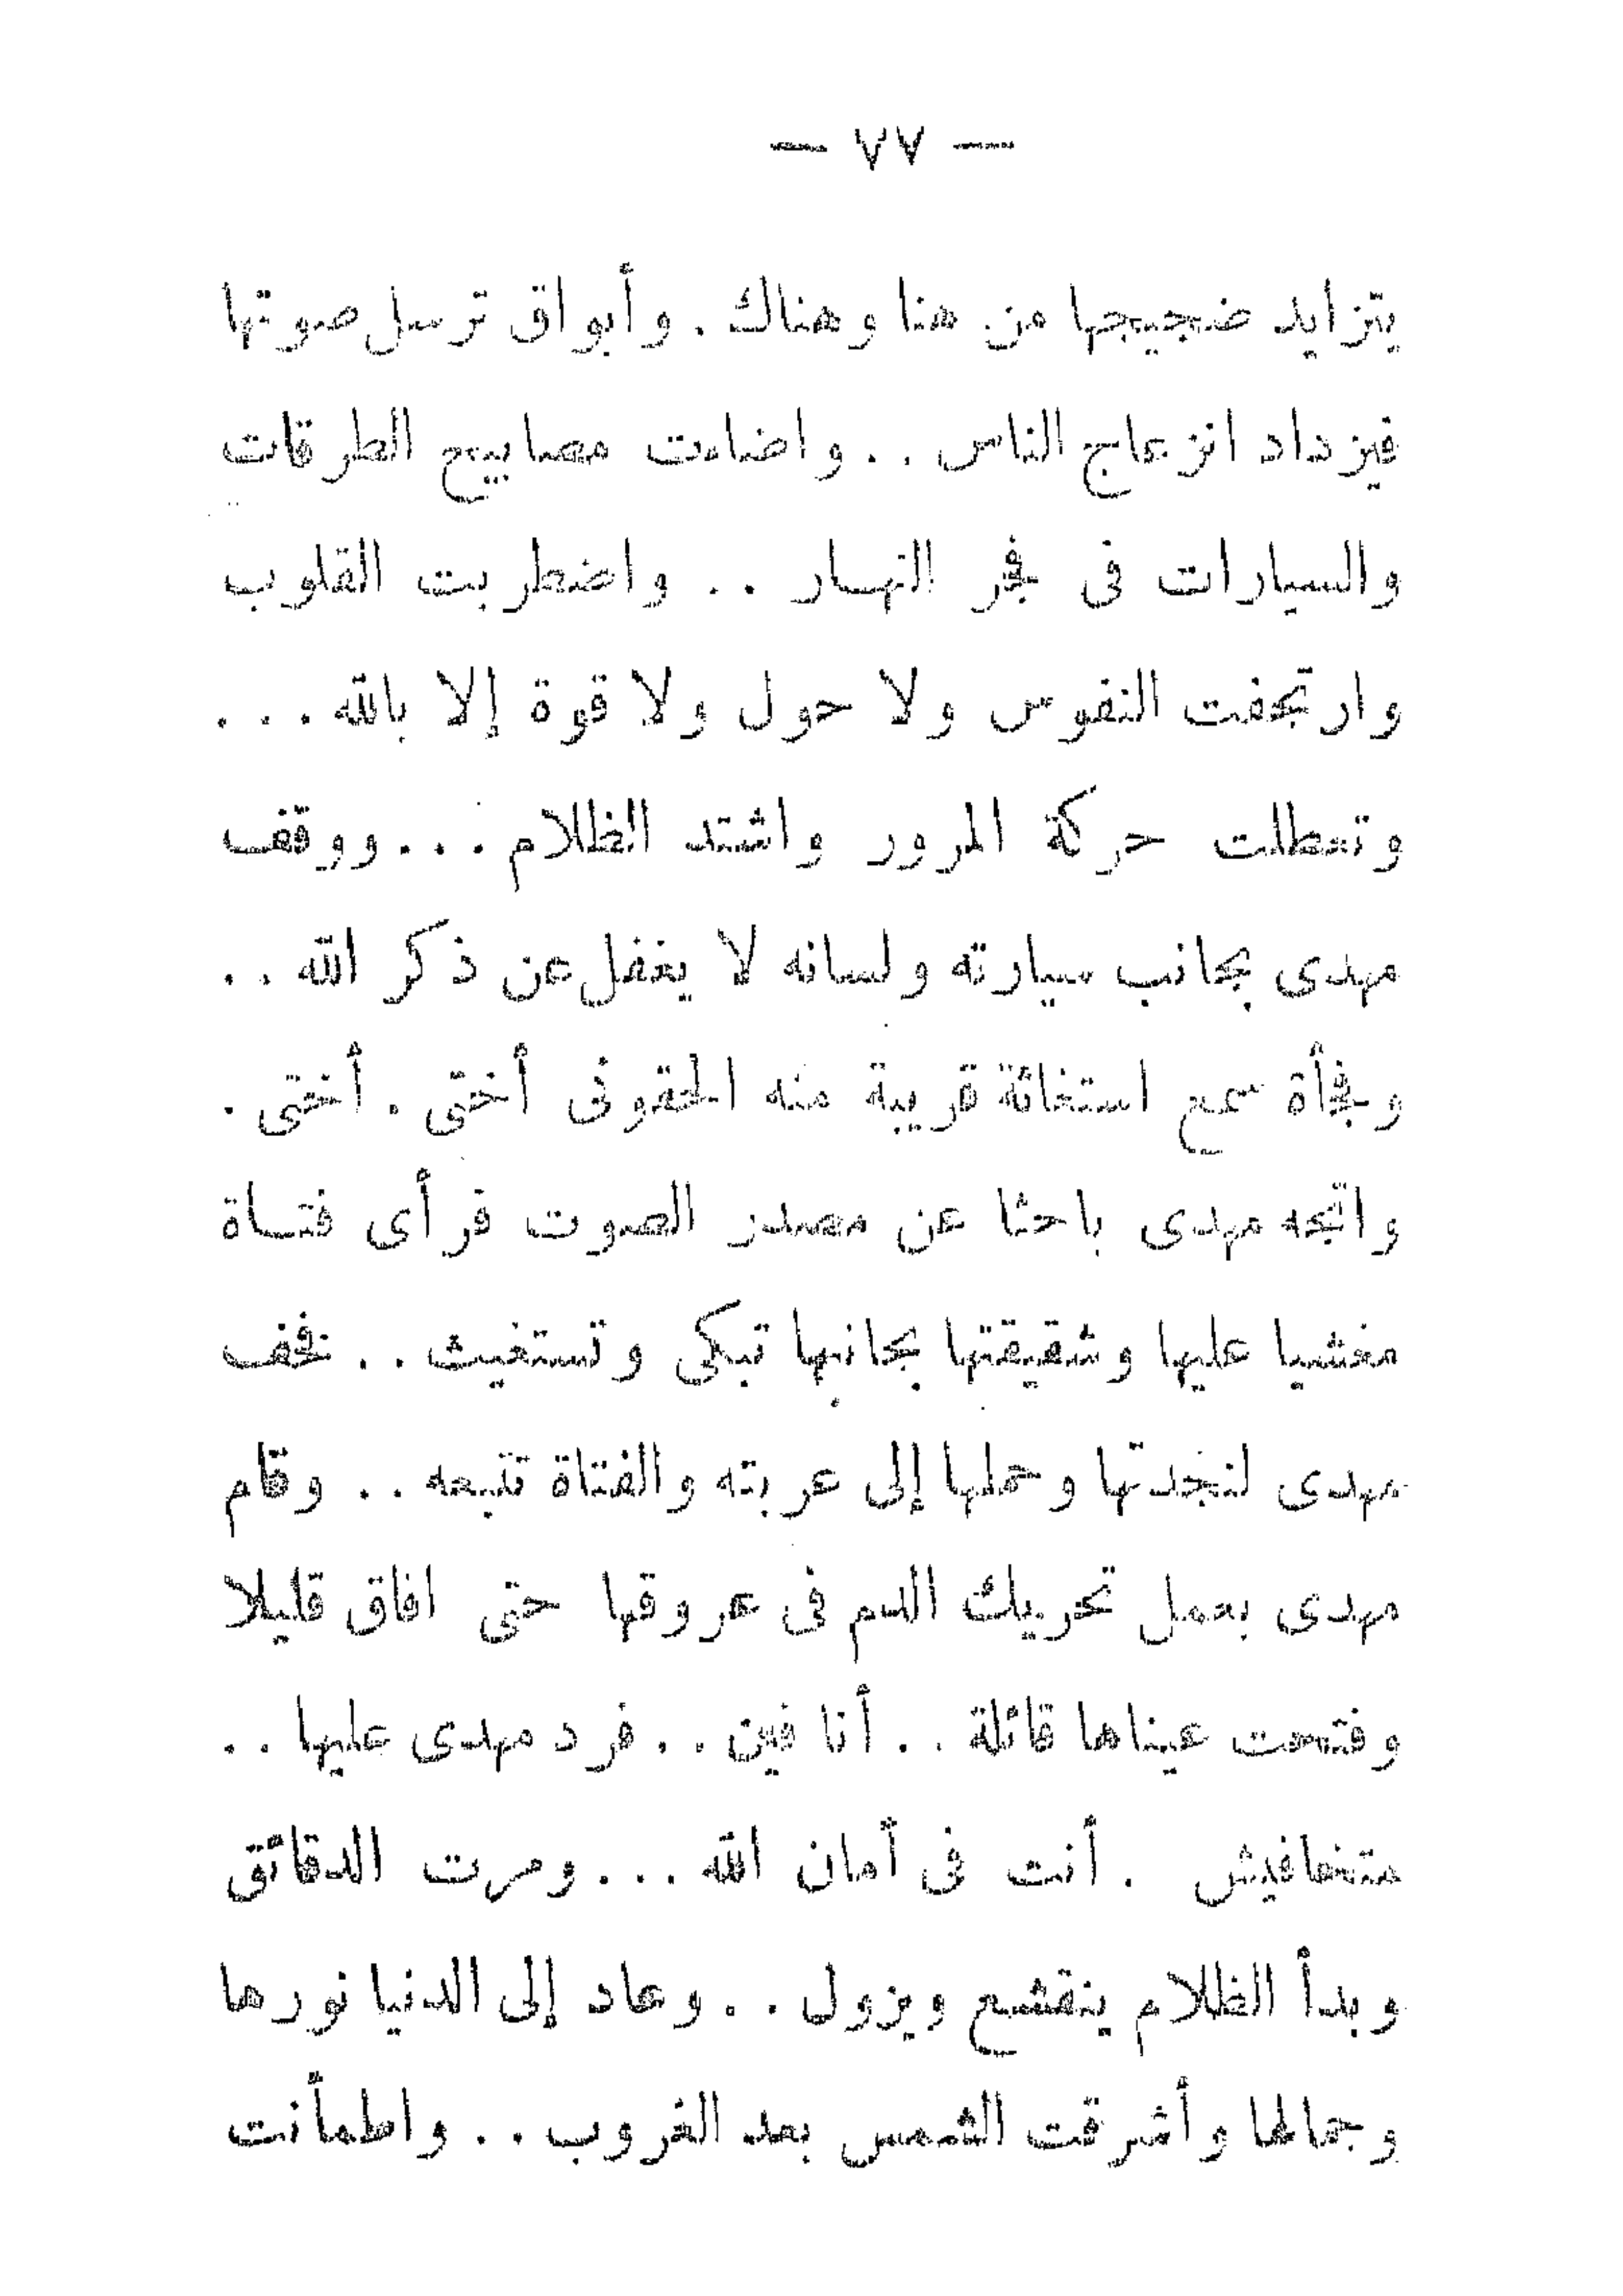 — ٧٧ —
يتزايد ضجيجها من هنا وهناك . وأبواق ترسل صوتها
فيزداد انزعاج الناس . . واضاءت مصابيح الطرقات
والسيارات فى فجر النهـار . . واضطربت القلوب
وارتجفت النفوس ولا حول ولا قوة إلا بالله . . .
وتعطلت حركة المرور واشتد الظلام . . . ووقف
مهدى بجانب سيارته ولسانه لا يغفل عن ذكر الله . .
وفجأة سمع استغاثة قريبة منه الحقونى أختى . أختى .
واتجه مهدى باحثا عن مصدر الصوت فرأى فتـاة
مغشيا عليها وشقيقتها بجانبها تبكى وتستغيث . . فخف
مهدى لنجدتها وحملها إلى عربته والفتاة تتبعه . . وقام
مهدى بعمل تحريك الدم فى عروقها حتى افاق قليلا
وفتحت عيناها قائلة . . أنا فين . . فرد مهدى عليها . .
متخافيش . أنت فى أمان الله . . . ومرت الدقائق
وبدأ الظلام ينقشع ويزول . . وعاد إلى الدنيا نورها
وجمالها وأشرقت الشمس بعد الغروب . . واطمأنت